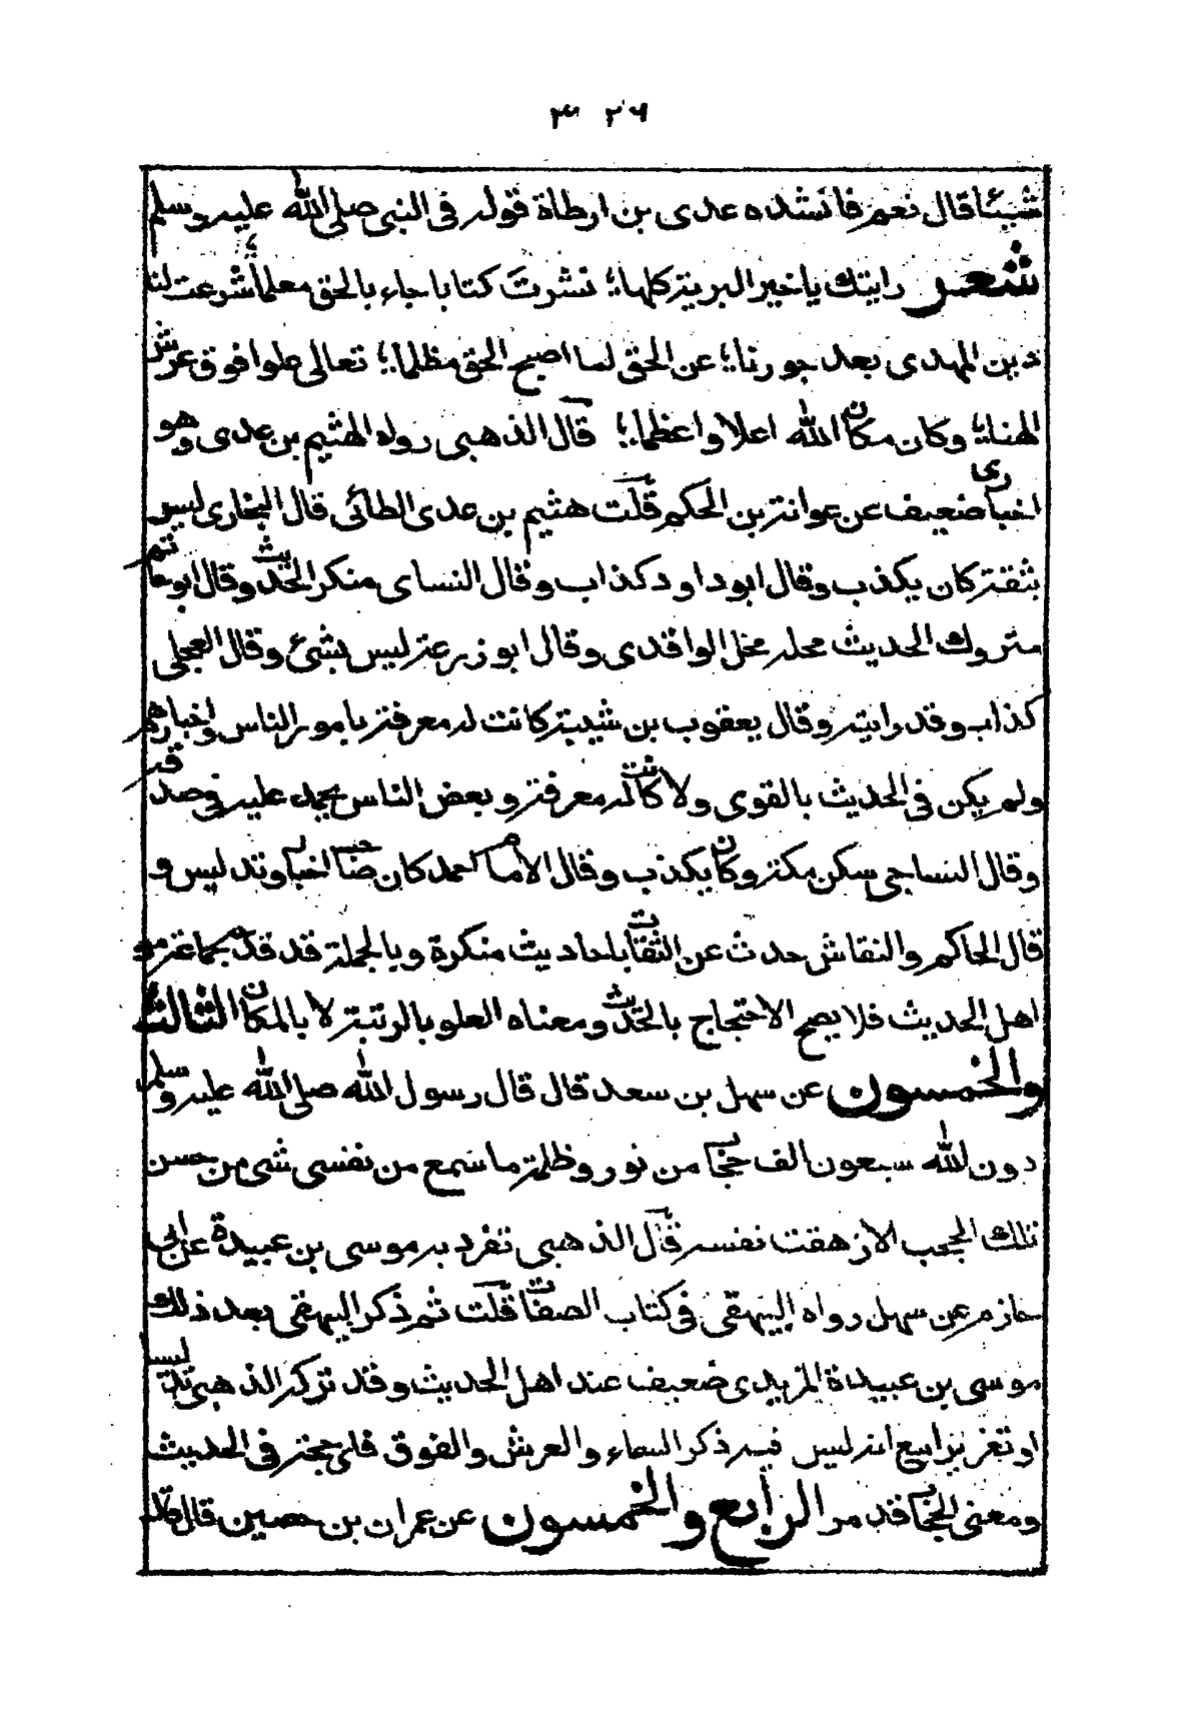 ٣٢٦
شيئا قال نعم فانشده عدى بن ارطاة قوله فى النبى صلى الله عليه وسلم
شعر رايتك يا خير البرية كلها؛ نشرت كتابا جاء بالحق معلما؛ شرعت لنا
دين الهدى بعد جورنا؛ عن الحق لما اصبح الحق مظلما؛ تعالى علوا فوق عرش
الهنا؛ وكان مكان الله اعلا واعظما؛ قال الذهبى رواه الهثيم بن عدى وهو
اخبارى ضعيف عن عوانة بن الحكم قلت هثيم بن عدى الطائى قال البخارى ليس
بثقة كان يكذب وقال ابو داود كذاب وقال النساى منكر الحديث وقال ابو حاتم
متروك الحديث محله محل الواقدى وقال ابو زرعة ليس بشئ وقال العجلى
كذاب وقد رايته وقال يعقوب بن شيبة كانت له معرفة بامور الناس واخبارهم
ولم يكن فى الحديث بالقوى ولا كانت له معرفة وبعض الناس يحمد عليه فى صدقه
وقال الساجى سكن مكة وكان يكذب وقال الامام احمد كان صاحب اخبار وتدليس و
قال الحاكم والنقاش حدث عن الثقات باحاديث منكرة وبالجملة قد قدح جماعة من
اهل الحديث فلا يصح الاحتجاج بالحديث ومعناه العلو بالرتبة لا بالمكان الثالث
والخمسون عن سهل بن سعد قال قال رسول الله صلى الله عليه وسلم
دون الله سبعون الف حجاب من نور وظلمة ما سمع من نفسى شى من حسن
تلك الحجب الا زهقت نفسه قال الذهبى تفرد به موسى بن عبيدة عن ابى
حازم عن سهل رواه البيهقى فى كتاب الصفات قلت ثم ذكر البيهقى بعد ذلك
موسى بن عبيدة الربدى ضعيف عند اهل الحديث وقد تركه الذهبى
او تغريرا مع انه ليس فيه ذكر السماء والعرش والفوق فاى حجة فى الحديث
ومعنى الحجاب قد مر الرابع والخمسون عن عمران بن حصين قال